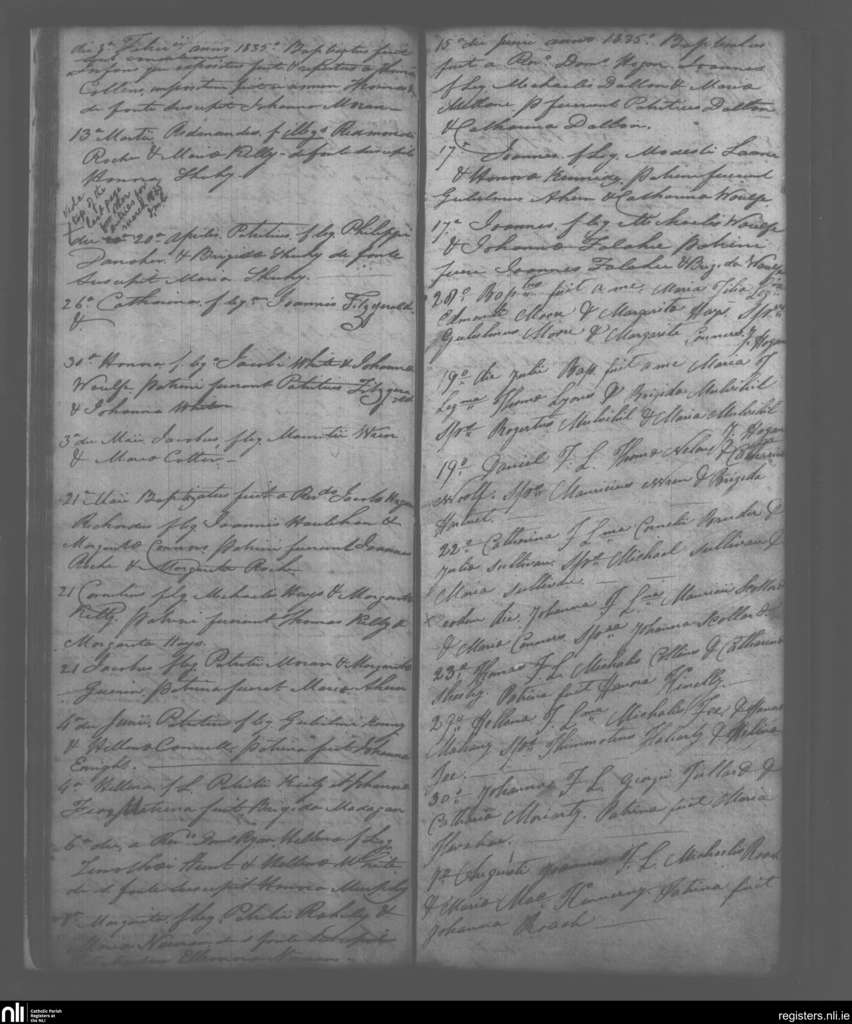 anno 1835. Baptizatus fuit
infans qui expositus fuit & repertus a Thoma
Collins, impositum fuit nomen Thomas &
de fonte suscepit Johanna Moran
13a Martii Redmundus f. illeg. Redmondi
Roche & Maria Kelly de fonte suscepit
Honora Sheehy
Vide
top of the
last page
for other
entries for
March 1835
die 20a Aprilis. Patritius f. leg. Philippi
& Brigida Sheehy de fonte
suscepit Maria Sheehy.
26a Catharina f. leg. Joannis Fitzgerald
&
30a Honora f. leg. Jacobi White & Johanna
Woulfe patrini fuerunt Patritius Fitzgerald
& Johanna White
3a die Maii Jacobus f. leg. Mauritii Wren
& Maria Cotter
21a Maii Baptizatus fuit a Revdo Jacobo Hogan
Richardus f. leg. Joannis Houlihan &
Margarita Connors patrini fuerunt Joannes
Roche & Margarita Roche
21 Cornelius f. leg. Michaelis Hays & Margarita
Kelly. patrini fuerunt Thomas Kelly &
Margarita Hays.
21 Jacobus f. leg. Patritii Moran & Margarita
Guerin, patrina fuerat Maria Ahern
4a die Junii, Patritius f. leg. Gulielmi
& Hellena Connell, patrina fuit Johanna
Enright.
4a Hellena f. L. Patritii et Johanna
patrina fuit Brigida Madagan
6a die, a Revdo Dom. Ryan Hellena f. leg.
Timothei Hunt & Hellena
de fonte suscepit Honora Murphy
8a Margarita f. leg. Patritii Rahilly &
Maria de fonte suscepit
Ellenora
15a die Junii anno 1835. Baptizatus
fuit a Revo. Domo. Hogan Joannes
f leg. Michaelis Dalton & Maria
p. fuerunt Patritius Dalton
& Catharina Dalton.
17a Joannes f leg. Modesti Leane
& Honora Kennedy, patrini fuerunt
Gulielmus Ahern & Catharina Woulfe
17a Joannes f leg Michaelis Woulfe
& Johanna Falahee patrini
fuere Joannes Falahee & Brig. da Woulfe
28o Baptus fuit a me, Maria Filia Legma
Edmundi Moore & Margarita Hays. Sptes
Gulielmus Moore & Margarita Connors J. Hogan
19o die Julii Bap. fuit a me Maria F
Legma Thoma Lyons & Brigida Mulvihil
Spts. Rogertus Mulvihil & Maria Mulvihil
J. Hogan
19o Daniel F. L. Thoma Nelan & Catherina
Woolf. Spts. Mauricius Wren & Brigida
22o Catherina F Lma Cornelii &
Julia Sullivan. Spts. Michael Sullivan &
Maria Sullivan.
Eodem die, Johanna F Lma Mauricii Scollard
& Maria Connors Spsa Johanna Scollard
23o Thomas F. L. Michalis Collins & Catharina
Sheehy. Patrina fuit Honora Kinelly.
27o Hellena F. Lma Michalis Fox, & Honora
Spts. Flaherty & Hellena
Fox.
30o Johannes F L. Georgii Fullard &
Catherina Moriarty. Patrina fuit Maria
1a Augusti Joannes F. L. Michaelis Roach
& Maria Mac Namara. Patrina fuit
Johanna Roach
nli
Catholic Parish
Registers at
the NLI
registers.nli.ie